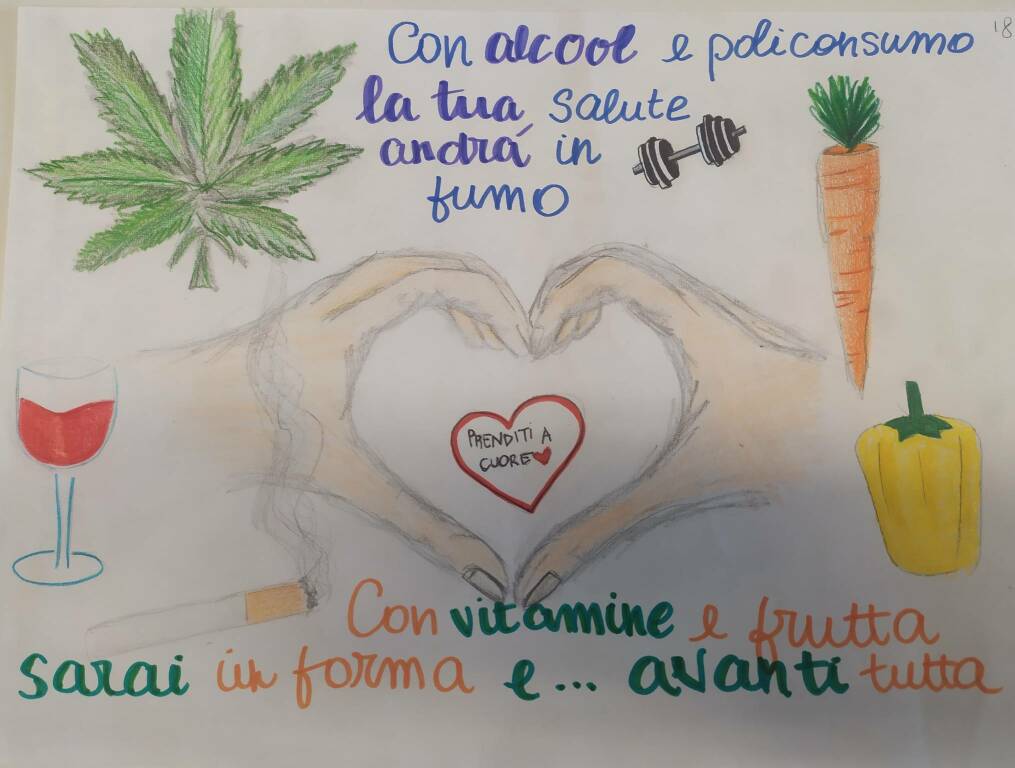 18
Con alcool e policonsumo
la tua salute
andrá in
fumo
PRENDITI A
CUORE
Con vitamine e frutta
sarai in forma e... avanti tutta